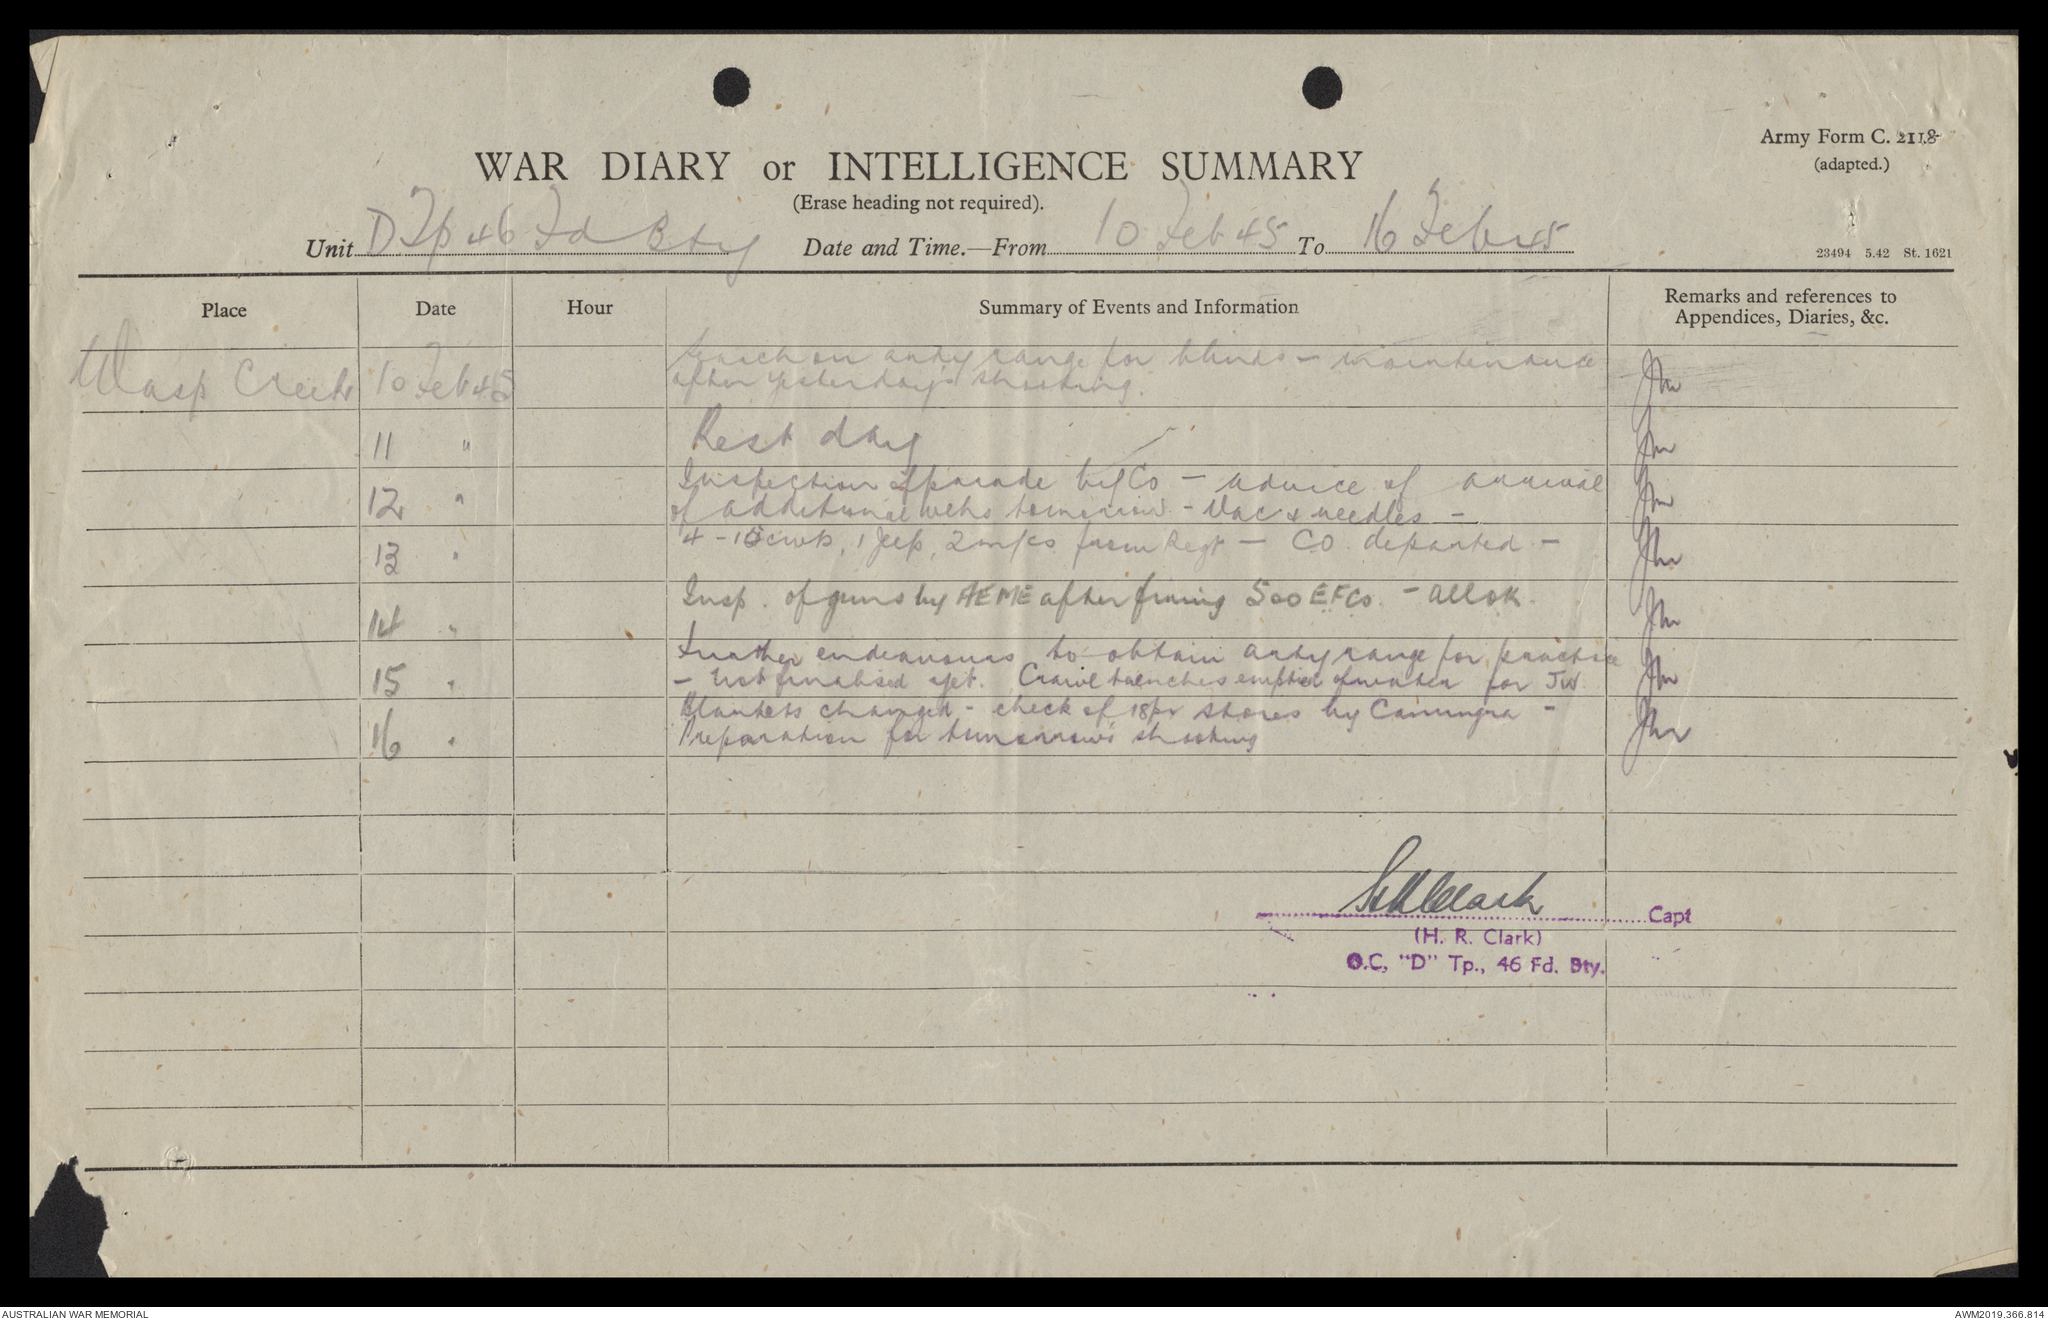 Army Form C. 2118
(adapted.)
WAR DIARY or INTELLIGENCE SUMMARY
(Erase heading not required).
Unit D Tp 46 Fd Bty Date and Time.—From 10 Feb 45 To 16 Feb 45
23494 5.42 St. 1621
Place Date Hour Summary of Events and Information Remarks and references to
Appendices, Diaries, &c.
Wasp Creek 10 Feb 45 Search on arty range for blinds - maintenance
after yesterday's shooting.
11 " Rest day
12 " Inspection of parade by CO - advice of arrival
of additional vehs tomorrow - Vac & needles -
13 " 4 - 15 cwts, 1 Jeep, 2 m/cs from Regt - CO departed -
14 " Insp. of guns by AEME after firing 500 EFCs. - all OK.
15 " Further endeavours to obtain arty range for practice
- not finalised yet. Crawl trenches emptied of water for JW.
16 " Blankets changed - check of 18pr stores by Canungra -
Preparation for tomorrow's shooting
HRClark Capt
(H. R. Clark)
O.C, "D" Tp., 46 Fd. Bty.
AUSTRALIAN WAR MEMORIAL
AWM2019.366.814